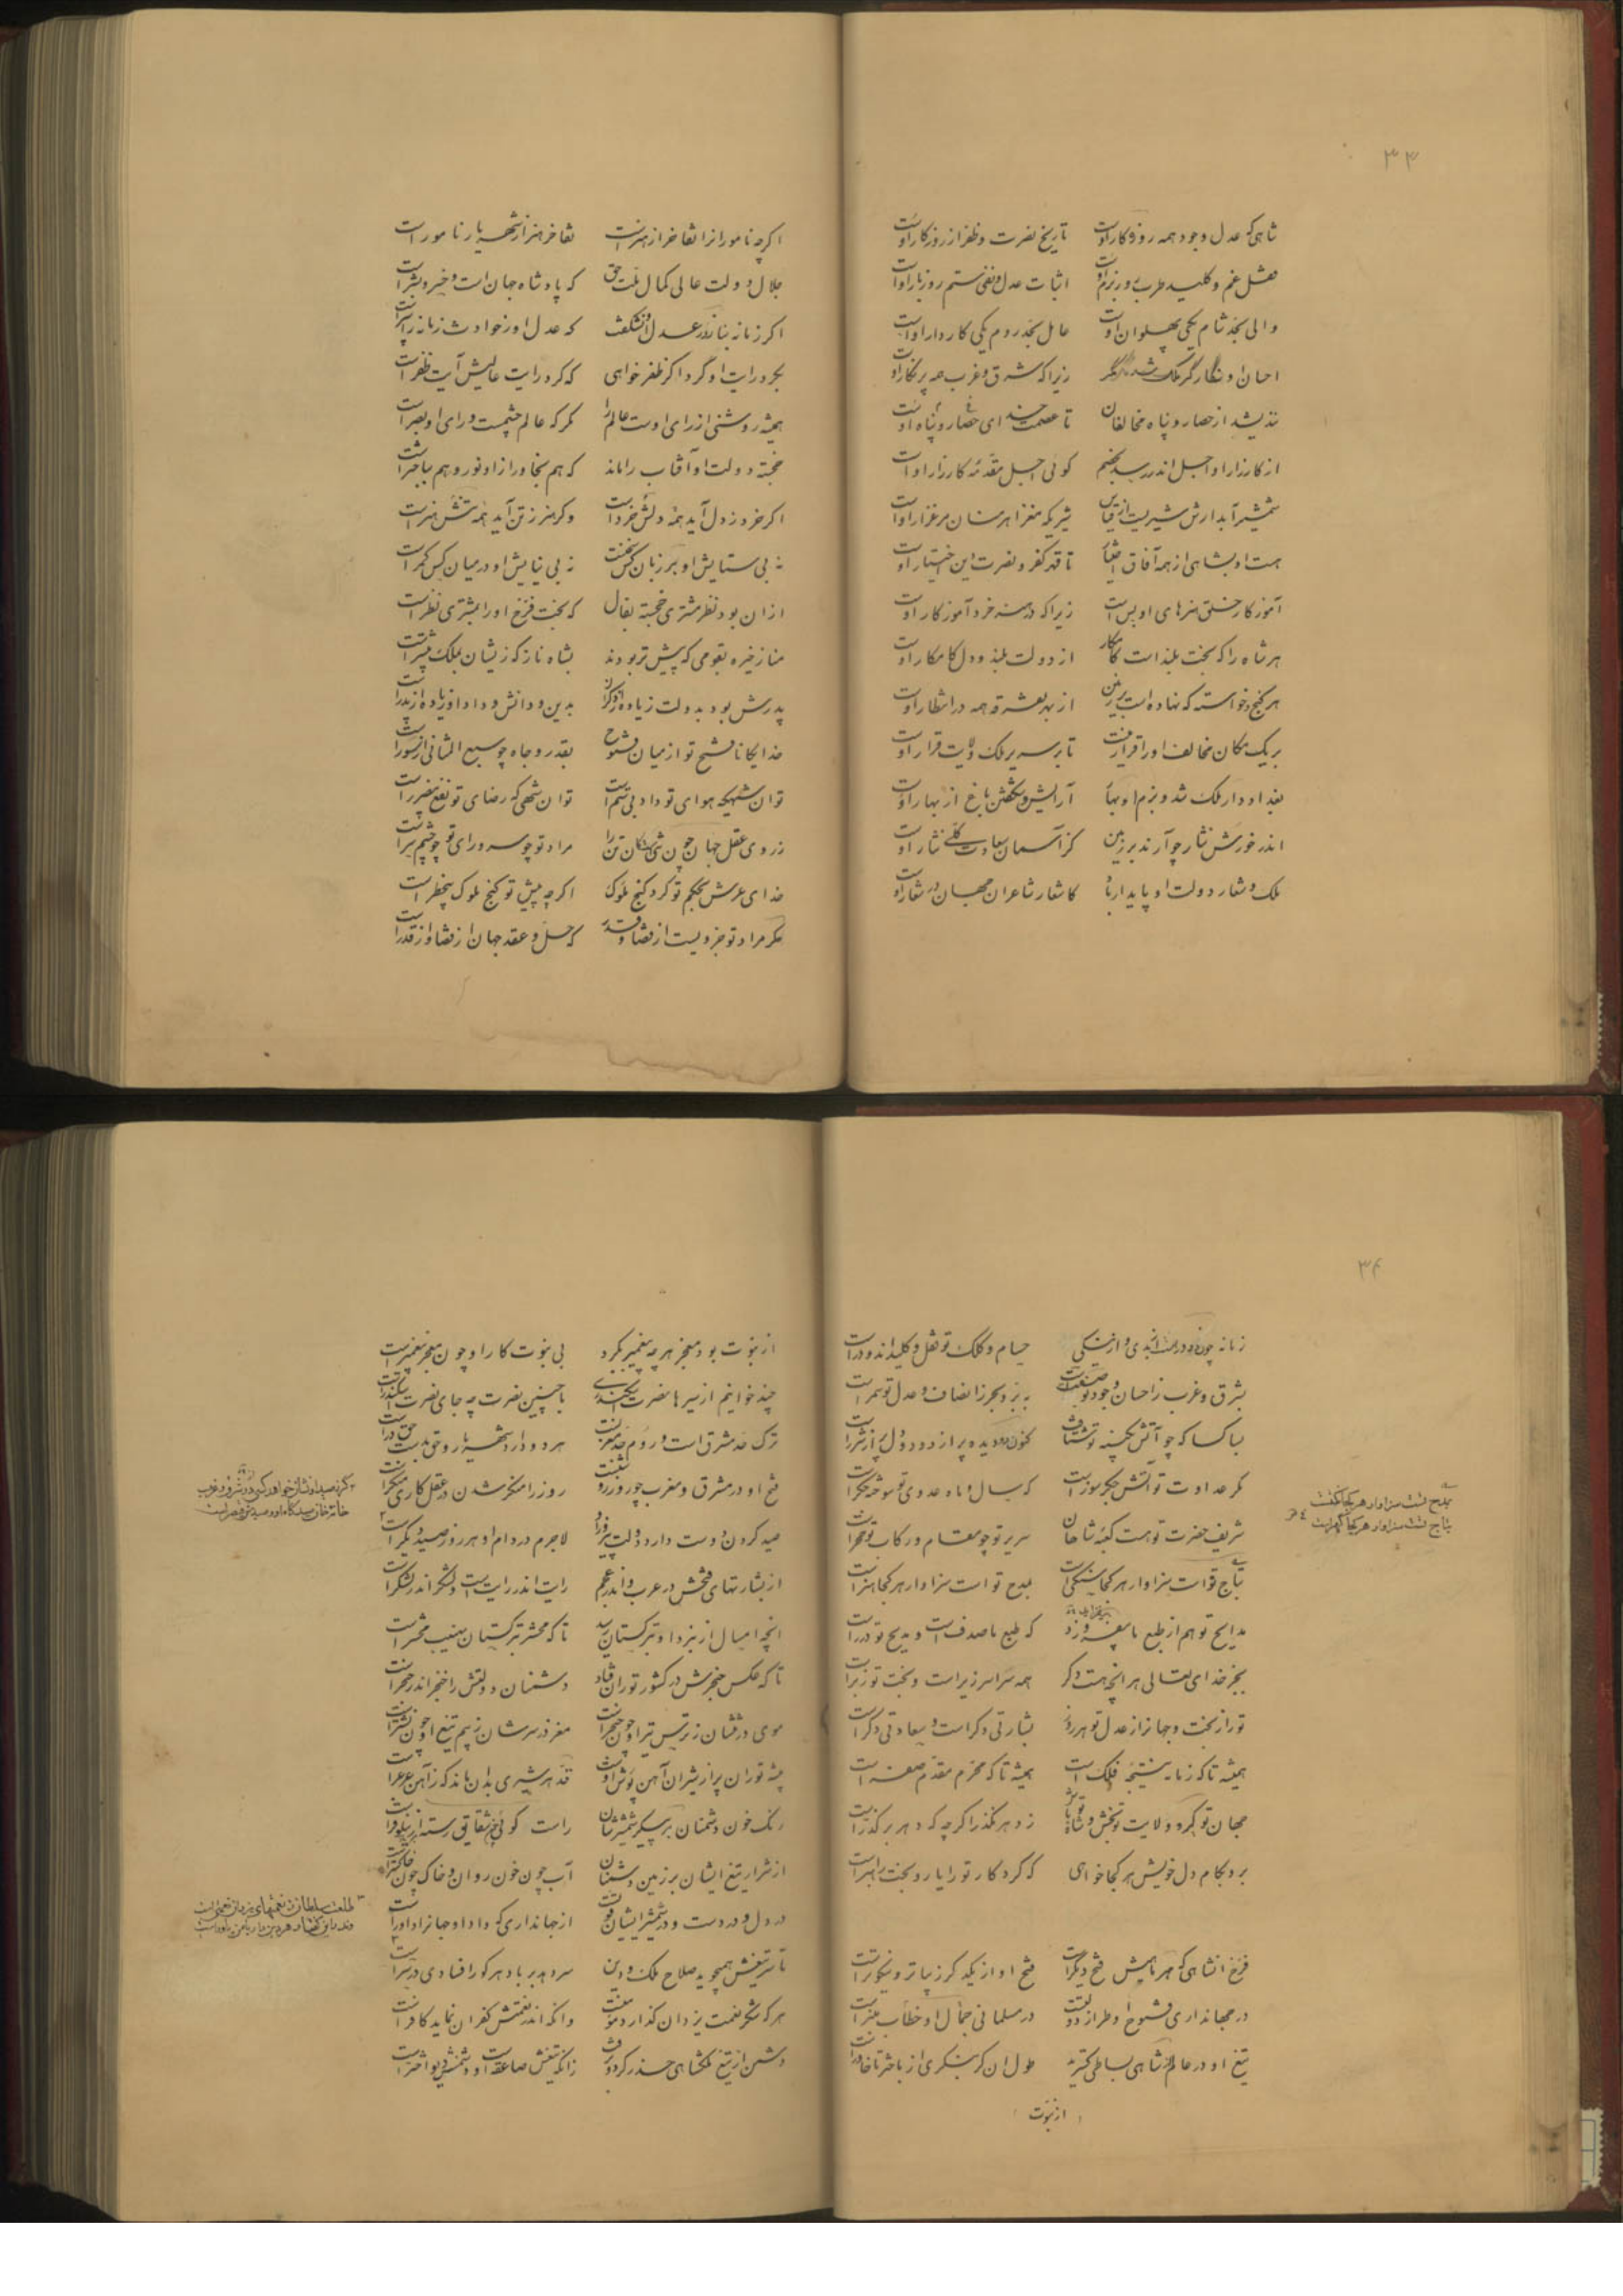 ۳۳
شاهی که عدل وجود همه روز و کار اوست تاریخ نصرت و ظفر از روزکار اوست
قفل غم و کلید طرب و رزم اوست اثبات عدل و نفی ستم روز بار اوست
والی بحد شام یکی پهلوان اوست عامل بحد روم یکی کاردار اوست
احسان او زیرا که شرق و غرب همه پر نکار اوست
نندیشد از حصار و پناه مخالفان تا عصمت خدای حصار و پناه اوست
از کارزار او اجل اندر رسد بخصم کوئی اجل مقدمه کارزار اوست
شمشیر آبدارش شیریست از قیاس شیری که مغز اهرمنان مرغزار اوست
هست او بشاهی از همه آفاق اختیار تا قهر کفر و نصرت دین اختیار اوست
آموزکار خلق هنرهای او بس است زیرا که در هنر خرد آموزکار اوست
هر شاه را که بخت بلند است کامکار از دولت بلند و دل کامکار اوست
هر کنج و خواسته که نهاده است بر زمین از بهر تفرقه همه در انتظار اوست
بر یک مکان مخالف او را قرار نیست تا بر سریر ملک ولایت قرار اوست
بغداد دار ملک شد و بزم او بهار آرایش و شکفتن باغ از بهار اوست
اندر خورش نثار چو آرند بر زمین کز آسمان سعادت کلی نثار اوست
ملک و شعار دولت او پایدار باد کاشعار شاعران جهان در شعار اوست
اکرچه نامورانرا تفاخر از هنر است تفاخر هنر از شهریار نامور است
جلال دولت عالی کمال ملت حق که پادشاه جهان است و خسرو بشر است
اکر زمانه بنازد ز عدل او نه شکفت که عدل او ز حوادث زمانه را سپر است
بکرد رایت او کرد اکر ظفر خواهی که کرد رایت عالیش آیت ظفر است
همیشه روشنی از رای اوست عالم را مکر که عالم چشمست و رای او بصر است
خجسته دولت او آفتاب را ماند که هم بخاور ازو نور و هم بباختر است
اکر خرد ز دل آید همه دلش خرد است وکر هنر ز تن آید همه تنش هنر است
نه بی ستایش او بر زبان کس سخنست نه بی نیایش او در میان کس کمر است
ازان بود نظر مشتری خجسته بفال که بخت فرخ او را بمشتری نظر است
مناز خیره بقومی که پیش تر بودند بشاه ناز که زیشان بملک بیشتر است
پدرش بود بدولت زیاده از دکران بدین و دانش و داد او زیاده از پدر است
خدایکانا فتح تو از میان فتوح بقدر و جاه چو سبع المثانی از سور است
توان شهی که هوای تو داد بی ستم است توان شهی که رضای تو نفع بی ضرر است
ز روی عقل جهان چون تنی است کان تن را مراد تو چو سر و رای تو چو چشم سر است
خدای عرش بحکم تو کرد کنج ملوک اکرچه پیش تو کنج ملوک بیخطر است
مکر مراد تو جزویست از قضا و قدر که حل و عقد جهان از قضا و از قدر است
۳۴
زمانه چون حسام و کلک تو قفل و کلید اندو در است
بشرق و غرب ز احسان وجود تو ببر و بحر ز انصاف و عدل تو سمر است
بسا کسا که چو آتش بکینه تو شتافت کنون دو دیده پر از دود و دل پر از شرر است
مکر عداوت تو آتش جکر سوز است که سال و ماه عدوی تو سوخته جکر است
شریف حضرت تو هست کعبه شاهان سریر تو چو مقام و رکاب تو حجر است
بتاج تو است سزاوار هر کجا ملکی است بمدح تو است سزاوار هر کجا هنر است
مدایح تو هم از طبع ما که طبع ما صدف است و مدیح تو درر است
بجز خدای تعالی هر انچه هست دکر همه سراسر زیر است و بخت تو زبر است
تو را ز بخت و جهانرا ز عدل تو هر روز بشارتی دکر است و سعادتی دکر است
همیشه تا که زمانه نتیجه فلک است همیشه تا که محرم مقدم صفر است
جهان تو کیر و ولایت تو بخش و شاه تو باش ز دهر مکذر اکرچه که دهر بر کذر است
برو بکام دل خویش هر کجا خواهی که کردکار تو را یار و بخت راهبر است
بمدح تست سزاوار هر کجا
بتاج تست سزاوار هر کجا
فرخ انشاهی که هر ماهیش فتح دیکر است فتح او از یکدکر زیباتر و نیکوتر است
در جهانداری فتوح او طراز دولتست در مسلمانی جمال او خطاب منبر است
تیغ او در عالم از شاهی بساطی کسترید طول ان کر بنکری از باختر تا خاور است
از نبوت
از نبوت بود معجز هرچه پیغمبر بکرد بی نبوت کار او چون معجز پیغمبر است
چند خوانیم از سیرها نصرت اسکندری با چنین نصرت چه جای نصرت اسکندر است
ترک حد مشرق است و روم حد مغربست هر دو دارد شهریار و حق بدست حق در است
فتح او در مشرق و مغرب چو روز روشنست روز را منکر شدن در عقل کاری منکر است
صید کردن دوست دارد دولت پیروز او لاجرم در دام او هر روز صید دیکر است
از بشارتهای فتحش در عرب و اندر عجم رایت اندر رایت است و لشکر اندر لشکر است
انچه امسال از نبرد او بترکستان رسید تا که محشر بترکستان نهیب محشر است
تا که عکس خنجرش در کشور توران فتاد دشمنان دولتش را خنجر اندر حنجر است
موی در تنشان ز ترس تیر او چون خنجر است مغز در سرشان ز بیم تیغ او چون نشتر است
بیشه توران پر از شیران آهن پوش اوست قد هر شیری بدان ماند که ز آهن عرعر است
رنک خون دشمنان بر پیکر شمشیرشان راست کوئی شقایق رسته از نیلوفر است
از شرار تیغ ایشان بر زمین دشمنان آب چون خون روان و خاک چون خاکستر است
در دل و در دست و در شمشیر ایشان قوت از جهانداری که داد او جهانرا داور است
تا سر تیغش همیجوید صلاح ملک و دین سر دهد بر باد هر کو را فسادی در سر است
هر که شکر نعمت یزدان کذارد مومنست وانکه اندر نعمتش کفران نماید کافر است
دشمن از تیغ ملکشاهی حذر کرد و رفت زانکه تیغش صاعقه است و دشمنش دیو اختر است